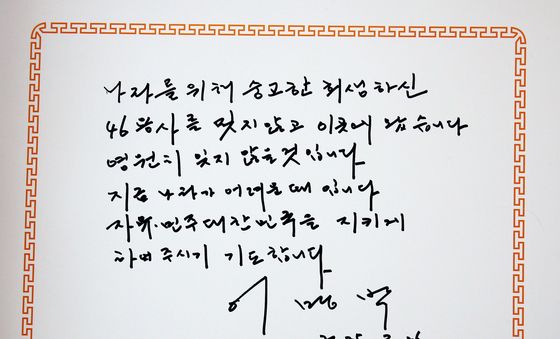 나라를 위해 숭고한 희생하신
46용사를 잊지 않고 이곳에 왔습니다
영원히 잊지 않을 것입니다
지금 나라가 어려울 때입니다
자유·민주대한민국을 지키게
하여 주시기 기도합니다
이명박